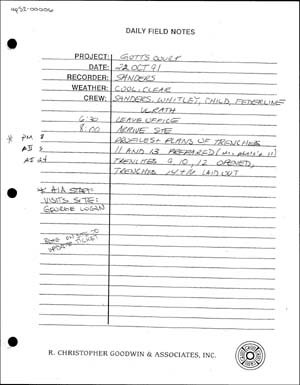 DAILY FIELD NOTES
PROJECT: GOTT'S COURT
DATE: 22 OCT 91
RECORDER: SANDERS
WEATHER: COOL, CLEAR
CREW: SANDERS, WHITLEY, CHILD, FEDERLINE
WRATH
6:30 LEAVE OFFICE
8:00 ARRIVE SITE
* PM 8 PROFILES + PLANS OF TRENCHES
11 AND 13 PREPARED
TRENCHES 9, 10, 12 OPENED,
TRENCHES 14 LAID OUT
* AIA STAFF
VISITS SITE:
GEORGE LOGAN
UPDATE TICKET
R. CHRISTOPHER GOODWIN & ASSOCIATES, INC.